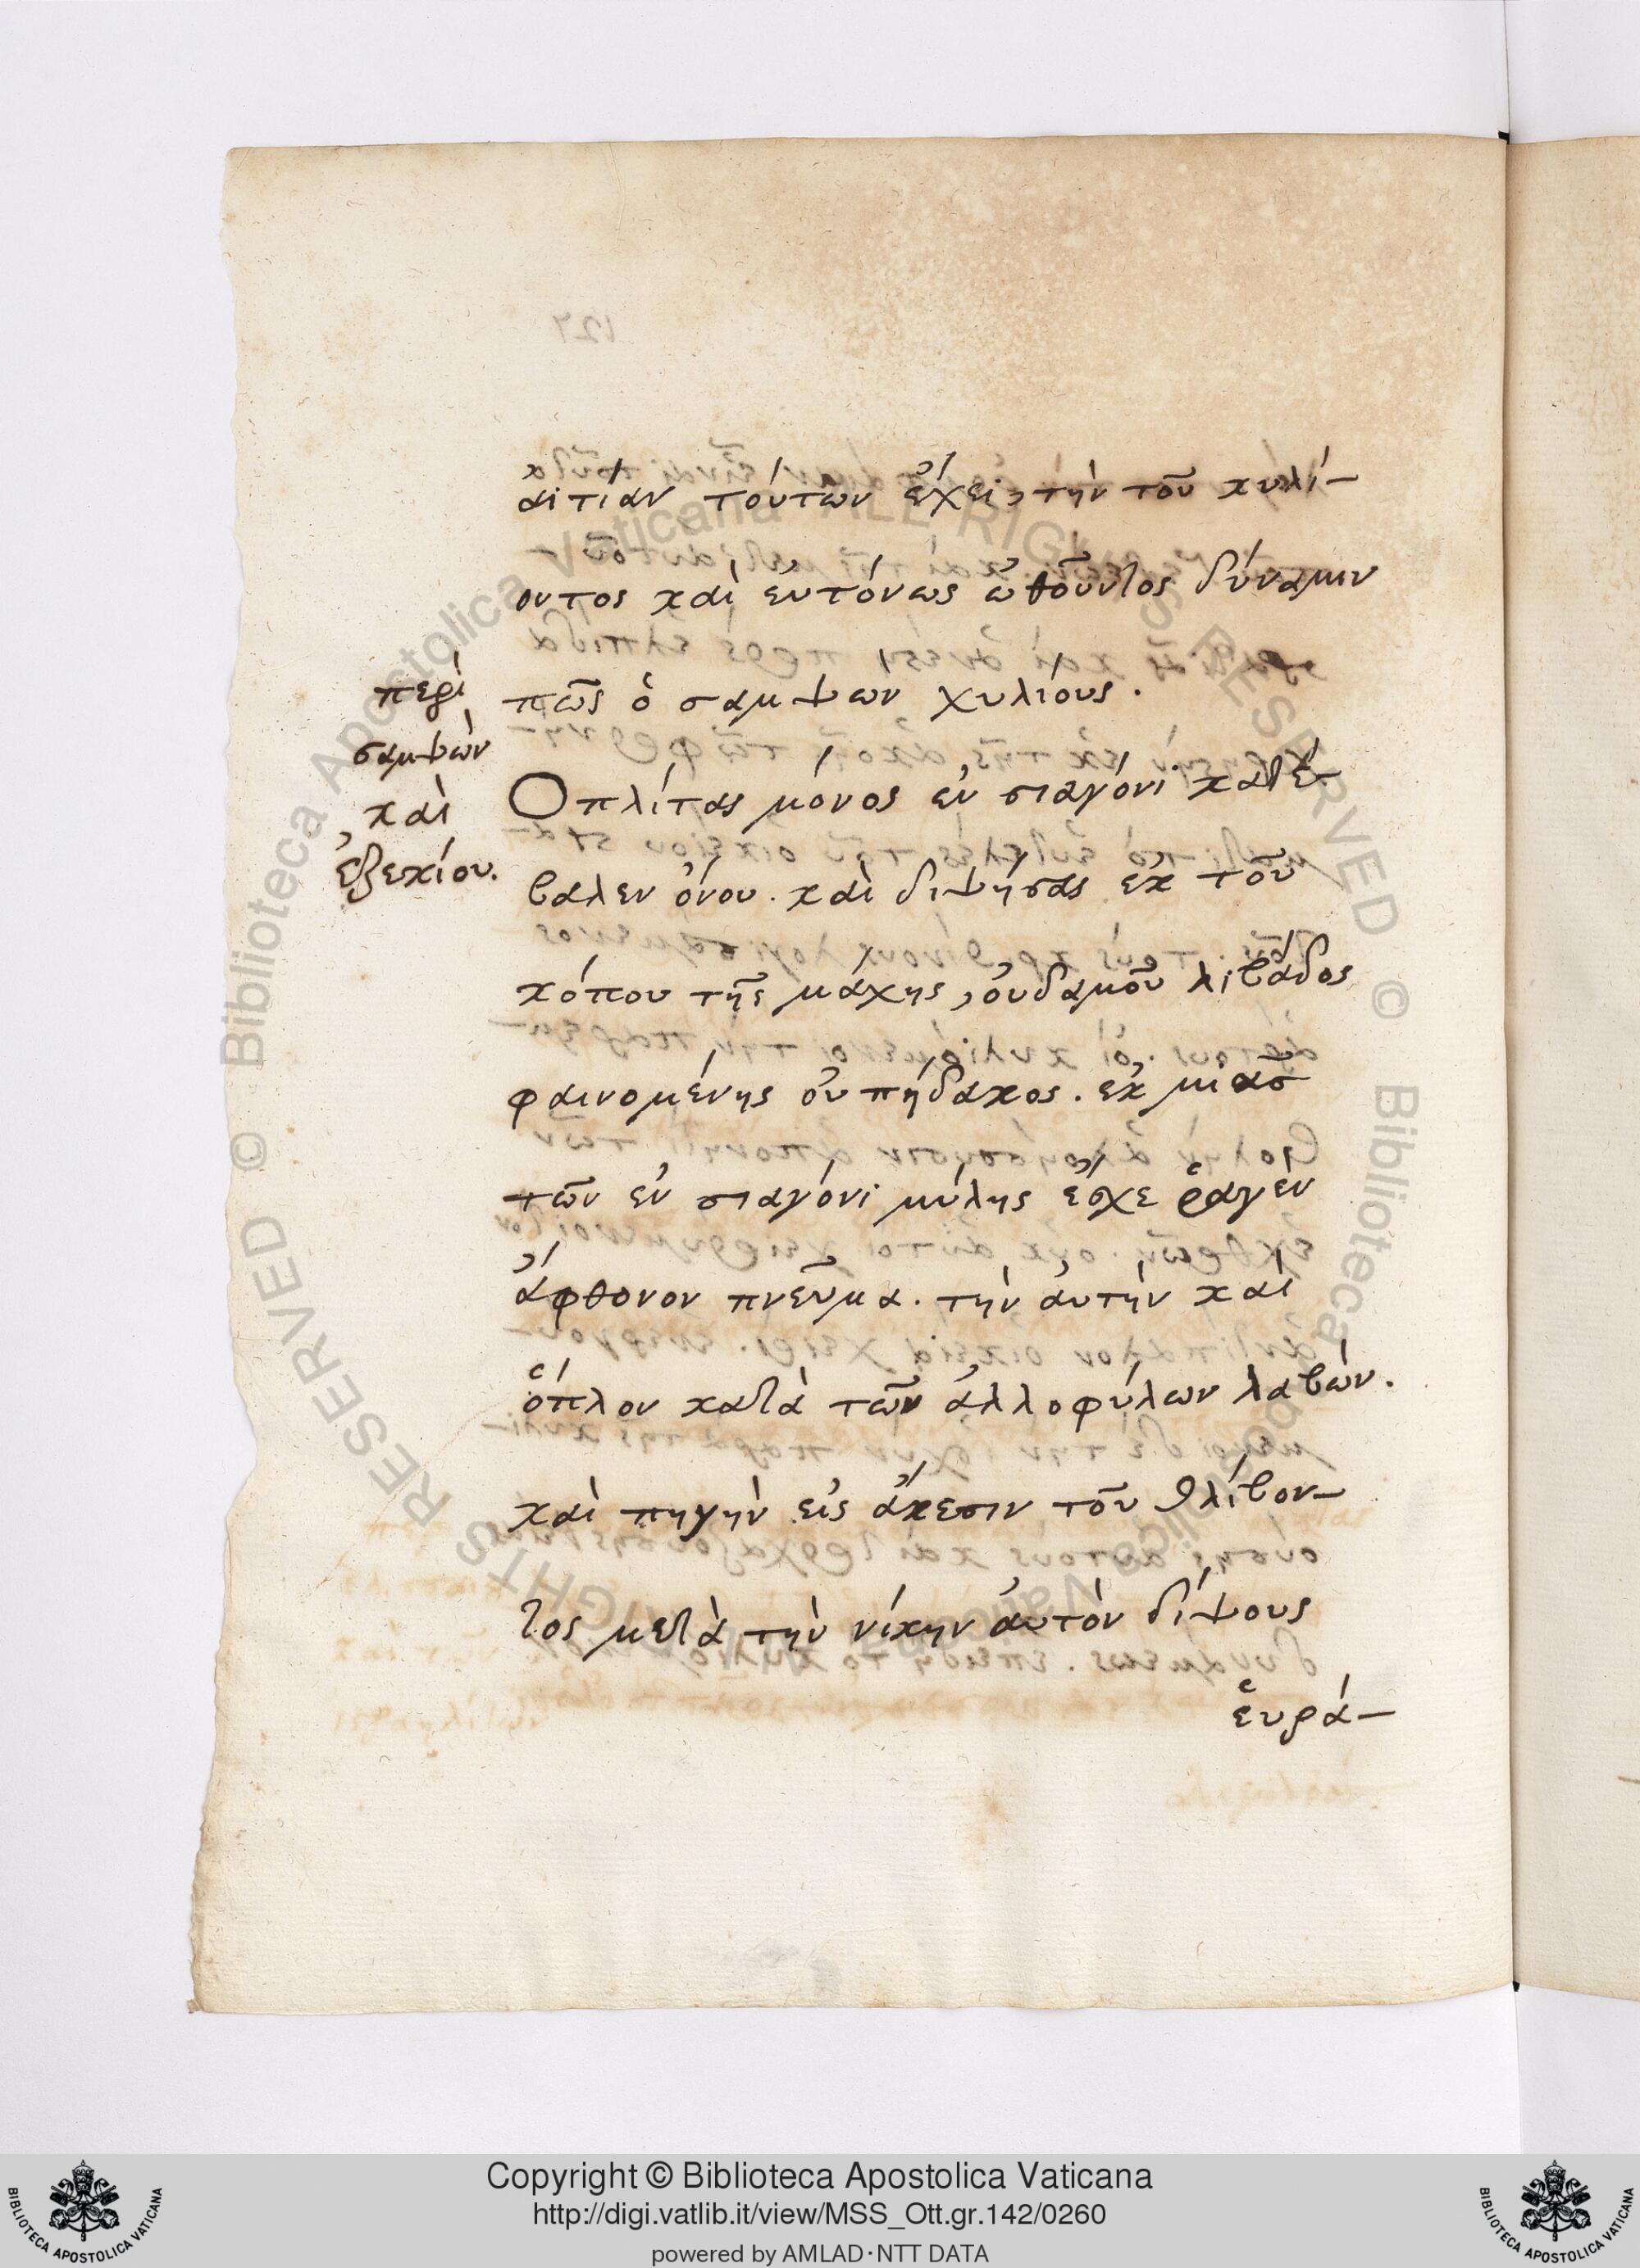 αἰτίαν τούτων ἔχει, τὴν τοῦ κυλί-
οντος καὶ εὐτόνως ὠθοῦντος δύναμιν
πῶς ὁ σαμψὼν χυλίους.
Οπλίτας μόνος ἐν σιαγόνι κατέ-
βαλεν ὄνου. καὶ διψήσας ἐκ τοῦ
κόπου τῆς μάχης, οὐδαμοῦ λιβάδος
φαινομένης οὐ πήδακος. ἐκ μιᾶσ
τῶν ἐν σιαγόνι μύλης ἔσχε ῥαγὲν
ἄφθονον πνεῦμα. τὴν αὐτὴν καὶ
ὅπλον κατὰ τῶν ἀλλοφύλων λαβών.
καὶ πηγὴν εἰς ἄκεσιν τοῦ θλίβον-
τος μετὰ τὴν νίκην αὐτὸν δίψους
εὑρά-
περὶ
σαμψὼν
καὶ
ἐξεκίου.
127
Copyright © Biblioteca Apostolica Vaticana
http://digi.vatlib.it/view/MSS_Ott.gr.142/0260
powered by AMLAD·NTT DATA
BIBLIOTECA APOSTOLICA VATICANA
BIBLIOTECA APOSTOLICA VATICANA
© Biblioteca Apostolica Vaticana ALL RIGHTS RESERVED
© Biblioteca Apostolica Vaticana ALL RIGHTS RESERVED